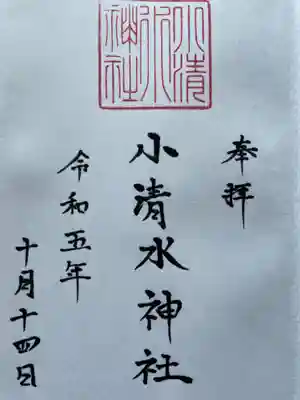 奉拝
小清水神社
令和五年
十月十四日
小清水神社